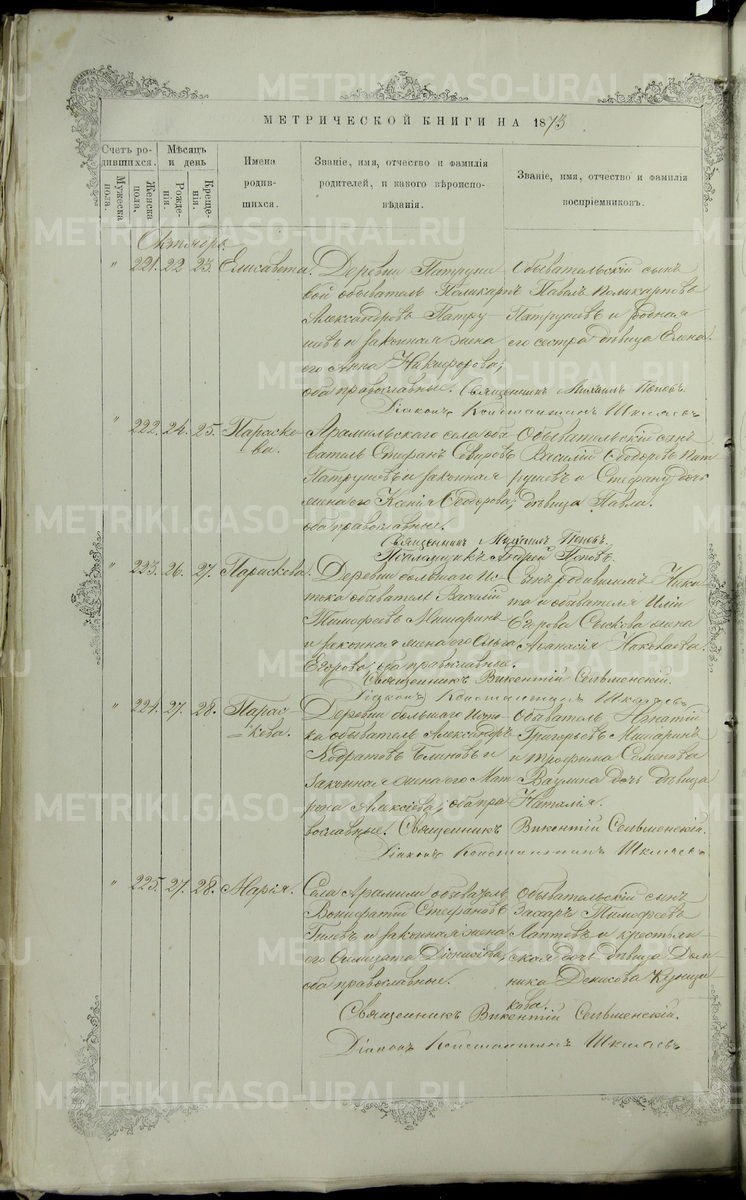 МЕТРИЧЕСКОЙ КНИГИ НА 1873
Счетъ родившихся.
Мужеска пола.
Женска пола.
Мѣсяцъ и день
Рожденія.
Крещенія.
Имена родившихся.
Званіе, имя, отчество и фамилія родителей, и какого вѣроисповѣданія.
Званіе, имя, отчество и фамилія воспріемниковъ.
Октябрь.
" 221. 22 23. Елисавета.
Деревни Патруше
вой обыватель Поликарпъ
Александровъ Патру
шевъ и законная жена
его Анна Никифорова;
оба православные.
Обывательскій сынъ
Павелъ Поликарповъ
Патрушевъ и родная
его сестра дѣвица Елена.
Священникъ Михаилъ Поповъ.
Діаконъ Константинъ Шкляевъ
" 222. 24. 25. Параске-
ва.
Арамильскаго села обы
ватель Стефанъ
Патрушевъ и законная
жена его Ксенія Ѳеодорова;
оба православные.
Обывательскій сынъ
Василій Ѳеодоровъ Пат
рушевъ и Стефана дочь
дѣвица Павла.
Священникъ Михаилъ Поповъ.
Псаломщикъ Поповъ.
" 223. 26. 27. Параскева.
Деревни большаго Ис
тока обыватель Василій
Тимофеевъ Мишаринъ
и законная жена его Ольга
Егорова; оба православные.
Сынъ родившихъ Ники
та и обывателя Иліи
Егорова жена
Аѳанасія
Священникъ Викентій Сельменскій.
Діаконъ Константинъ Шкляевъ
" 224. 27. 28. Парас-
кева.
Деревни большаго Исто
ка обыватель Александръ
Кодратовъ Блиновъ и
законная жена его Мат
рена Алексіева; оба пра
вославные.
Обыватель Игнатій
Григорьевъ Мишаринъ
и Трофима Семенова
Ваулина дочь дѣвица
Наталія.
Священникъ Викентій Сельменскій.
Діаконъ Константинъ Шкляевъ
" 225. 27. 28. Марія.
Села Арамили обыватель
Вонифатій Стефановъ
Гилевъ и законная жена
его Діонисіева,
оба православные.
Обывательскій сынъ
Захаръ Тимофеевъ
Лаптевъ и крестьян
ская дочь дѣвица Дом
ника Денисова Кузнец
кова.
Священникъ Викентій Сельменскій.
Діаконъ Константинъ Шкляевъ
METRIKI.GASO-URAL.RU